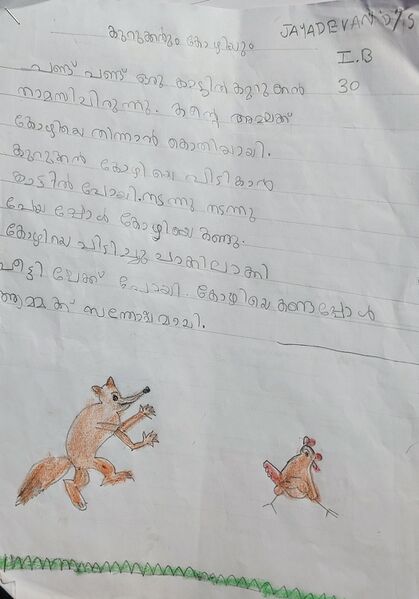 കുറുക്കനും കോഴിയും
JAYADEVAN
I.B
30
പണ്ട് പണ്ട് ഒരു കാട്ടിൽ കുറുക്കൻ
താമസിച്ചിരുന്നു. കന്റെ അമ്മക്ക്
കോഴിയെ തിന്നാൻ കൊതിയായി.
കുറുക്കൻ കോഴിയെ പിടികാൻ
കാട്ടിൽ പോയി. നടന്നു നടന്നു
പോയപ്പോൾ കോഴിയെ കണ്ടു.
കോഴിയെ പിടിച്ചു ചാക്കിലാക്കി
വീട്ടിലേക്ക് പോയി. കോഴിയെ കണ്ടപ്പോൾ
അമ്മക്ക് സന്തോഷമായി.